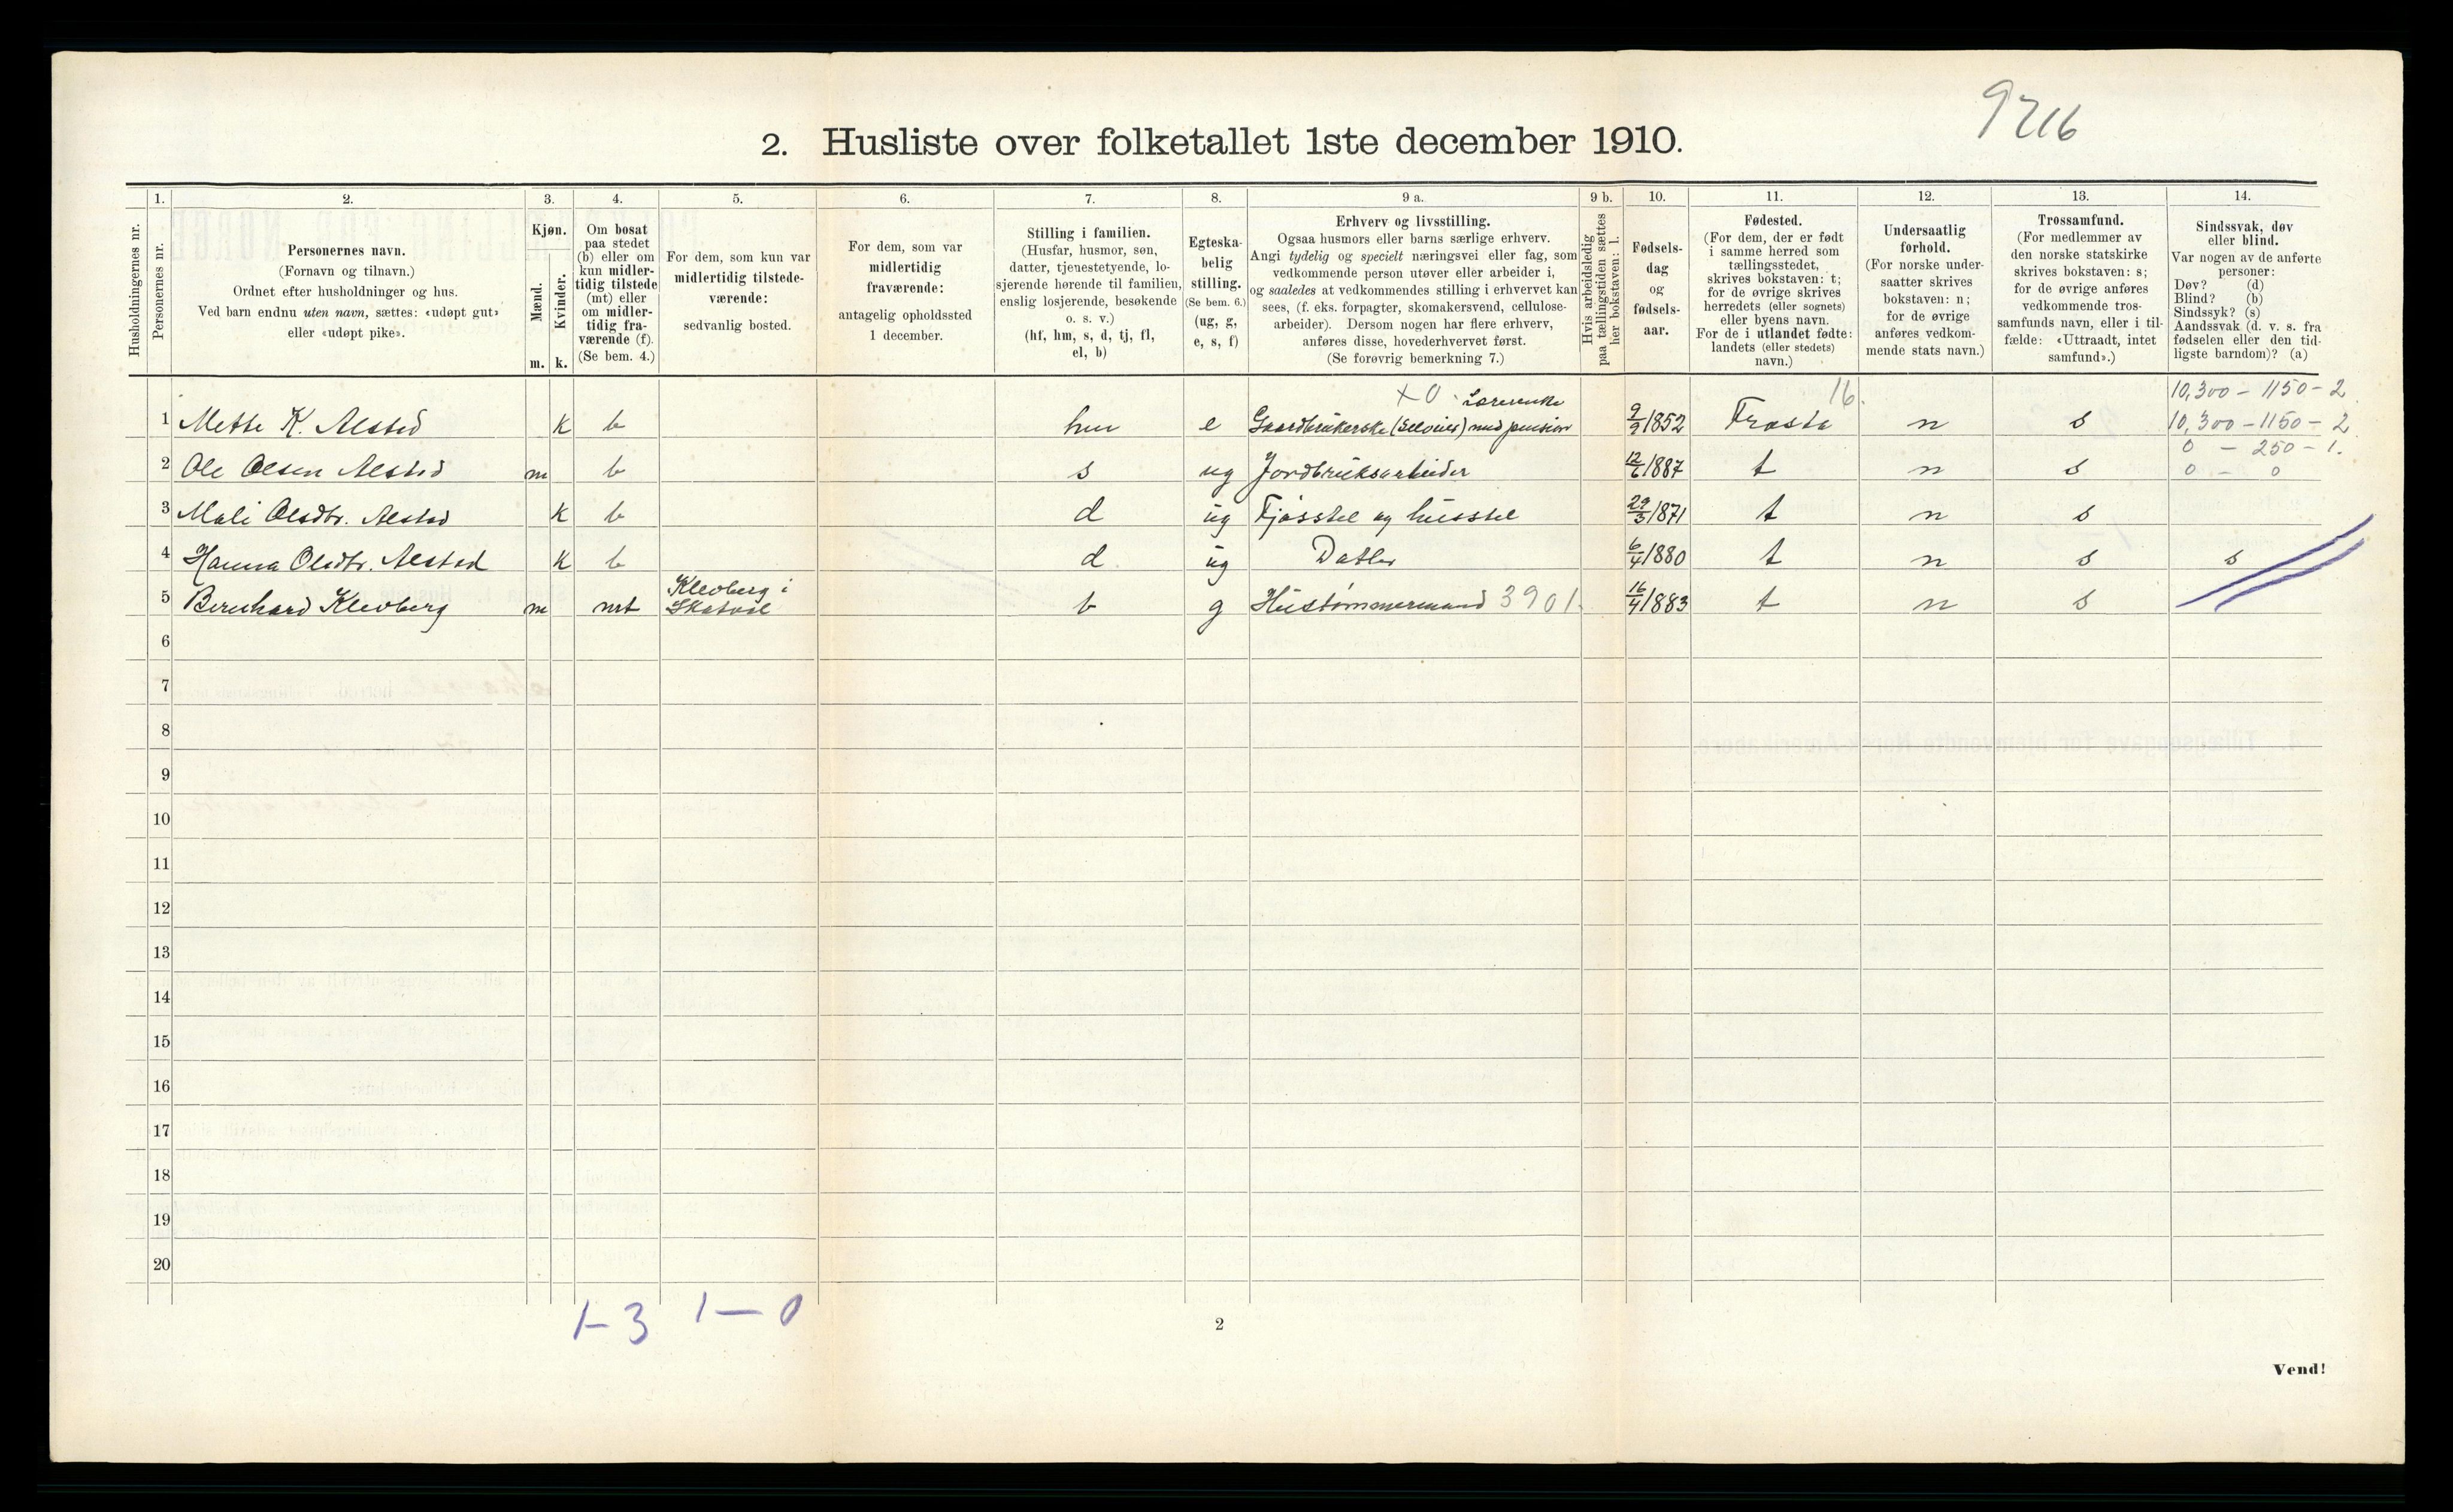 9216
2. Husliste over folketallet 1ste december 1910.
Husholdningernes nr.
1.
Personernes nr.
2.
Personernes navn.
(Fornavn og tilnavn.)
Ordnet efter husholdninger og hus.
Ved barn endnu uten navn, sættes: «udøpt gut»
eller «udøpt pike».
3.
Kjøn.
Mænd.
Kvinder.
m. k.
4.
Om bosat
paa stedet
(b) eller om
kun midler-
tidig tilstede
(mt) eller
om midler-
tidig fra-
værende (f).
(Se bem. 4.)
5.
For dem, som kun var
midlertidig tilstede-
værende:
sedvanlig bosted.
6.
For dem, som var
midlertidig
fraværende:
antagelig opholdssted
1 december.
7.
Stilling i familien.
(Husfar, husmor, søn,
datter, tjenestetyende, lo-
sjerende hørende til familien,
enslig losjerende, besøkende
o. s. v.)
(hf, hm, s, d, tj, fl,
el, b)
8.
Egteska-
belig
stilling.
(Se bem. 6.)
(ug, g,
e, s, f)
9 a.
Erhverv og livsstilling.
Ogsaa husmors eller barns særlige erhverv.
Angi tydelig og specielt næringsvei eller fag, som
vedkommende person utøver eller arbeider i,
og saaledes at vedkommendes stilling i erhvervet kan
sees, (f. eks. forpagter, skomakersvend, cellulose-
arbeider). Dersom nogen har flere erhverv,
anføres disse, hovederhvervet først.
(Se forøvrig bemerkning 7.)
9 b.
Hvis arbeidsledig
paa tællingstiden sættes
her bokstaven: l.
10.
Fødsels-
dag
og
fødsels-
aar.
11.
Fødested.
(For dem, der er født
i samme herred som
tællingsstedet,
skrives bokstaven: t;
for de øvrige skrives
herredets (eller sognets)
eller byens navn.
For de i utlandet fødte:
landets (eller stedets)
navn.)
12.
Undersaatlig
forhold.
(For norske under-
saatter skrives
bokstaven: n;
for de øvrige
anføres vedkom-
mende stats navn.)
13.
Trossamfund.
(For medlemmer av
den norske statskirke
skrives bokstaven: s;
for de øvrige anføres
vedkommende tros-
samfunds navn, eller i til-
fælde: «Uttraadt, intet
samfund».)
14.
Sindssvak, døv
eller blind.
Var nogen av de anførte
personer:
Døv? (d)
Blind? (b)
Sindssyk? (s)
Aandssvak (d. v. s. fra
fødselen eller den tid-
ligste barndom)? (a)
x 0 Lærerenke 16. 10,300 – 1150 – 2
1 Mette K. Alstad k b hm e Gaardbrukerske (Selveier) med pension 9/9 1852 Frosta n s 10,300 – 1150 – 2
0 – 250 – 1.
2 Ole Olsen Alstad m b s ug Jordbruksarbeider 12/6 1887 t n s 0 – 0
3 Mali Olsdtr. Alstad k b d ug Fjøsstel og husstel 29/3 1871 t n s
4 Hanna Olsdtr. Alstad k b d ug Datter 6/4 1880 t n s s
5 Bernhard Klevberg m mt Klevberg i Skatval b g Hustømmermand 3901. 16/4 1883 t n s
6
7
8
9
10
11
12
13
14
15
16
17
18
19
20
1–3 1–0
2
Vend!